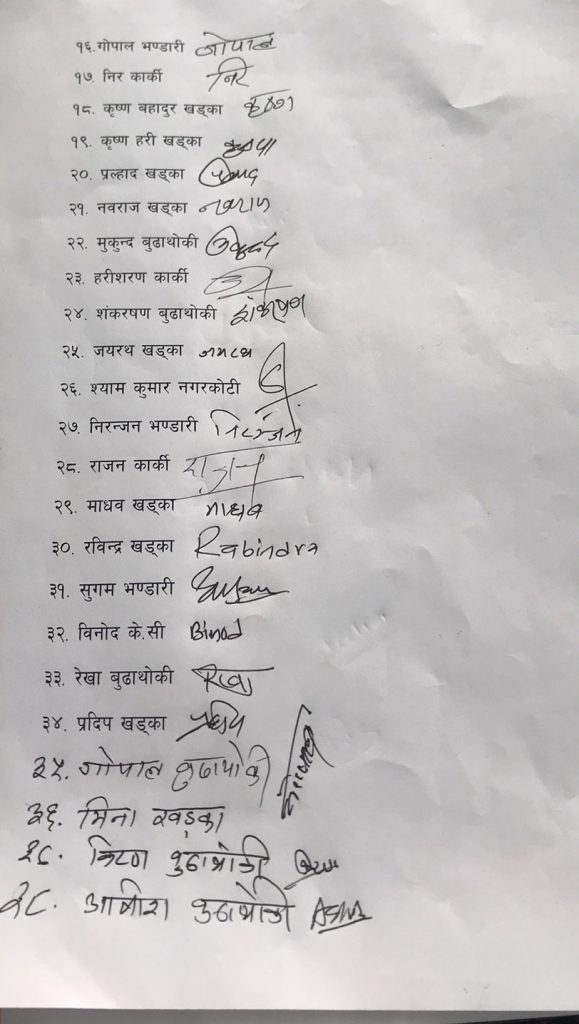 १६. गोपाल भण्डारी गोपाल
१७. निर कार्की निर
१८. कृष्ण बहादुर खड्का कृष्ण
१९. कृष्ण हरी खड्का
२०. प्रल्हाद खड्का
२१. नवराज खड्का नवराज
२२. मुकुन्द बुढाथोकी मुकुन्द
२३. हरीशरण कार्की
२४. शंकरषण बुढाथोकी शंकर्षण
२५. जयरथ खड्का जयरथ
२६. श्याम कुमार नगरकोटी
२७. निरन्जन भण्डारी निरंजन
२८. राजन कार्की राजन
२९. माधव खड्का माधव
३०. रविन्द्र खड्का Rabindra
३१. सुगम भण्डारी
३२. विनोद के.सी Binod
३३. रेखा बुढाथोकी रेखा
३४. प्रदिप खड्का प्रदिप
३५. गोपाल बुढाथोकी गोपाल
३६. मिना खड्का
बुढाथोकी
३८. बुढाथोकी